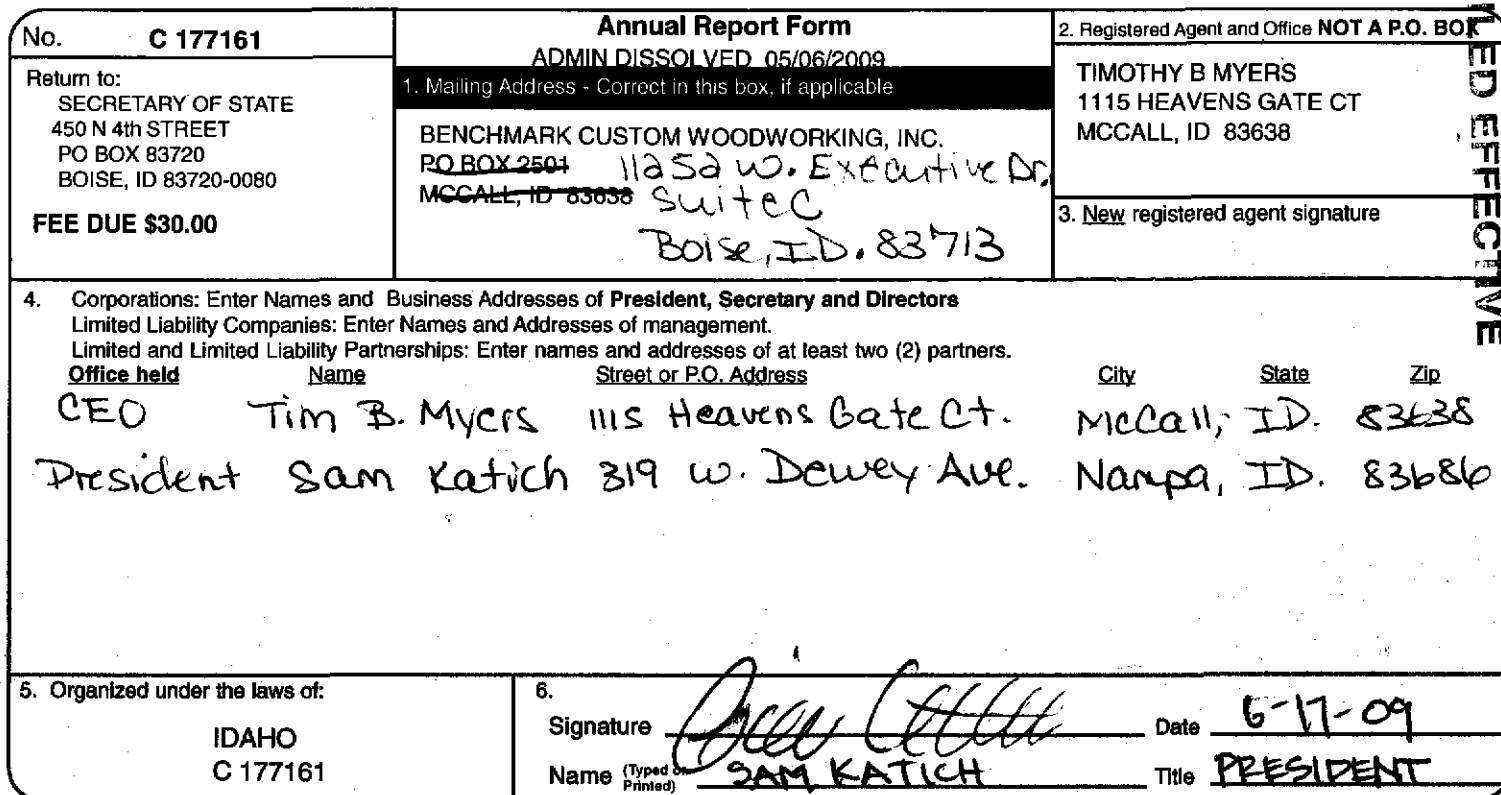 No. C 177161
Return to:
SECRETARY OF STATE
450 N 4th STREET
PO BOX 83720
BOISE, ID 83720-0080
FEE DUE $30.00
Annual Report Form
ADMIN DISSOLVED 05/06/2009
1. Mailing Address - Correct in this box, if applicable
BENCHMARK CUSTOM WOODWORKING, INC.
PO BOX 2501 11252 W. Executive Dr.
MCCALL, ID 83638 Suite C
Boise, ID. 83713
2. Registered Agent and Office NOT A P.O. BOX
TIMOTHY B MYERS
1115 HEAVENS GATE CT
MCCALL, ID 83638
3. New registered agent signature
LED EFFECTIVE
4. Corporations: Enter Names and Business Addresses of President, Secretary and Directors
Limited Liability Companies: Enter Names and Addresses of management.
Limited and Limited Liability Partnerships: Enter names and addresses of at least two (2) partners.
Office held Name Street or P.O. Address City State Zip
CEO Tim B. Myers 1115 Heavens Gate Ct. McCall, ID. 83638
President Sam Katich 319 W. Dewey Ave. Nampa, ID. 83686
5. Organized under the laws of:
IDAHO
C 177161
6.
Signature Date 6-17-09
Name (Typed or Printed) SAM KATICH Title PRESIDENT